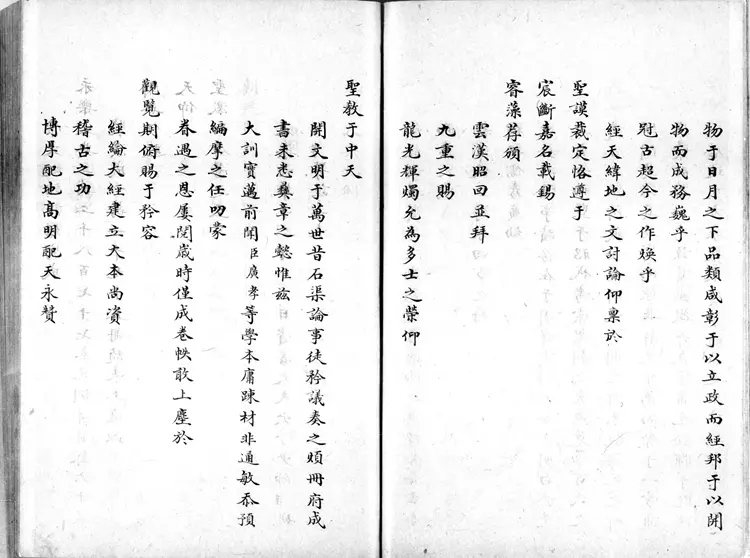 物于日月之下品類咸彰于以立政而經邦于以開
物而成務巍乎
冠古超今之作煥乎
經天緯地之文討論仰稟於
聖謨裁定恪遵于
宸斷嘉名載錫
睿藻荐頒
雲漢昭回並拜
九重之賜
龍光輝燭允為多士之榮仰
聖教于中天
開文明于萬世昔石渠論事徒矜議奏之煩冊府成
書未悉彝章之懿惟茲
大訓實邁前聞臣廣孝等學本庸踈材非通敏忝預
編摩之任叨蒙
眷遇之恩屢閱歲時僅成卷帙敢上塵於
觀覽期俯賜于矜容
經綸大經建立大本尚資
稽古之功
博厚配地高明配天永贊